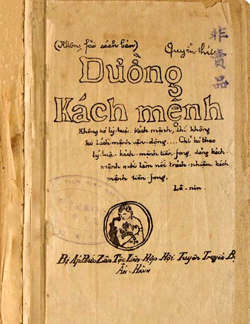 (Không phải sách bán)
非賣品
Đường
Kách mệnh
Không có lý luận kách mệnh, thì không
có kách mệnh vận động.... Chỉ có theo
lý luận kách mệnh tiền fong, đảng kách
mệnh mới làm nổi trách nhiệm kách
mệnh tiền fong.
Lê-nin
Bị Áp Bức Dân Tộc Liên Hợp Hội Tuyên Truyền Bộ